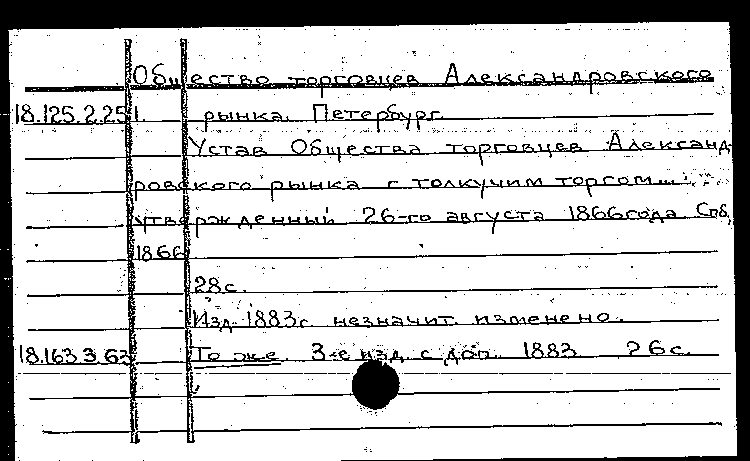 Общество торговцев Александровского
18.125.2.251. рынка. Петербург.
Устав Общества торговцев Александ-
ровского рынка с толкучим торгом...
утвержденный 26-го августа 1866 года Спб,
1866
28с.
Изд. 1883г. незначит. изменено.
18.163.3.63 То же. 3-е изд. с доп. 1883 26с.